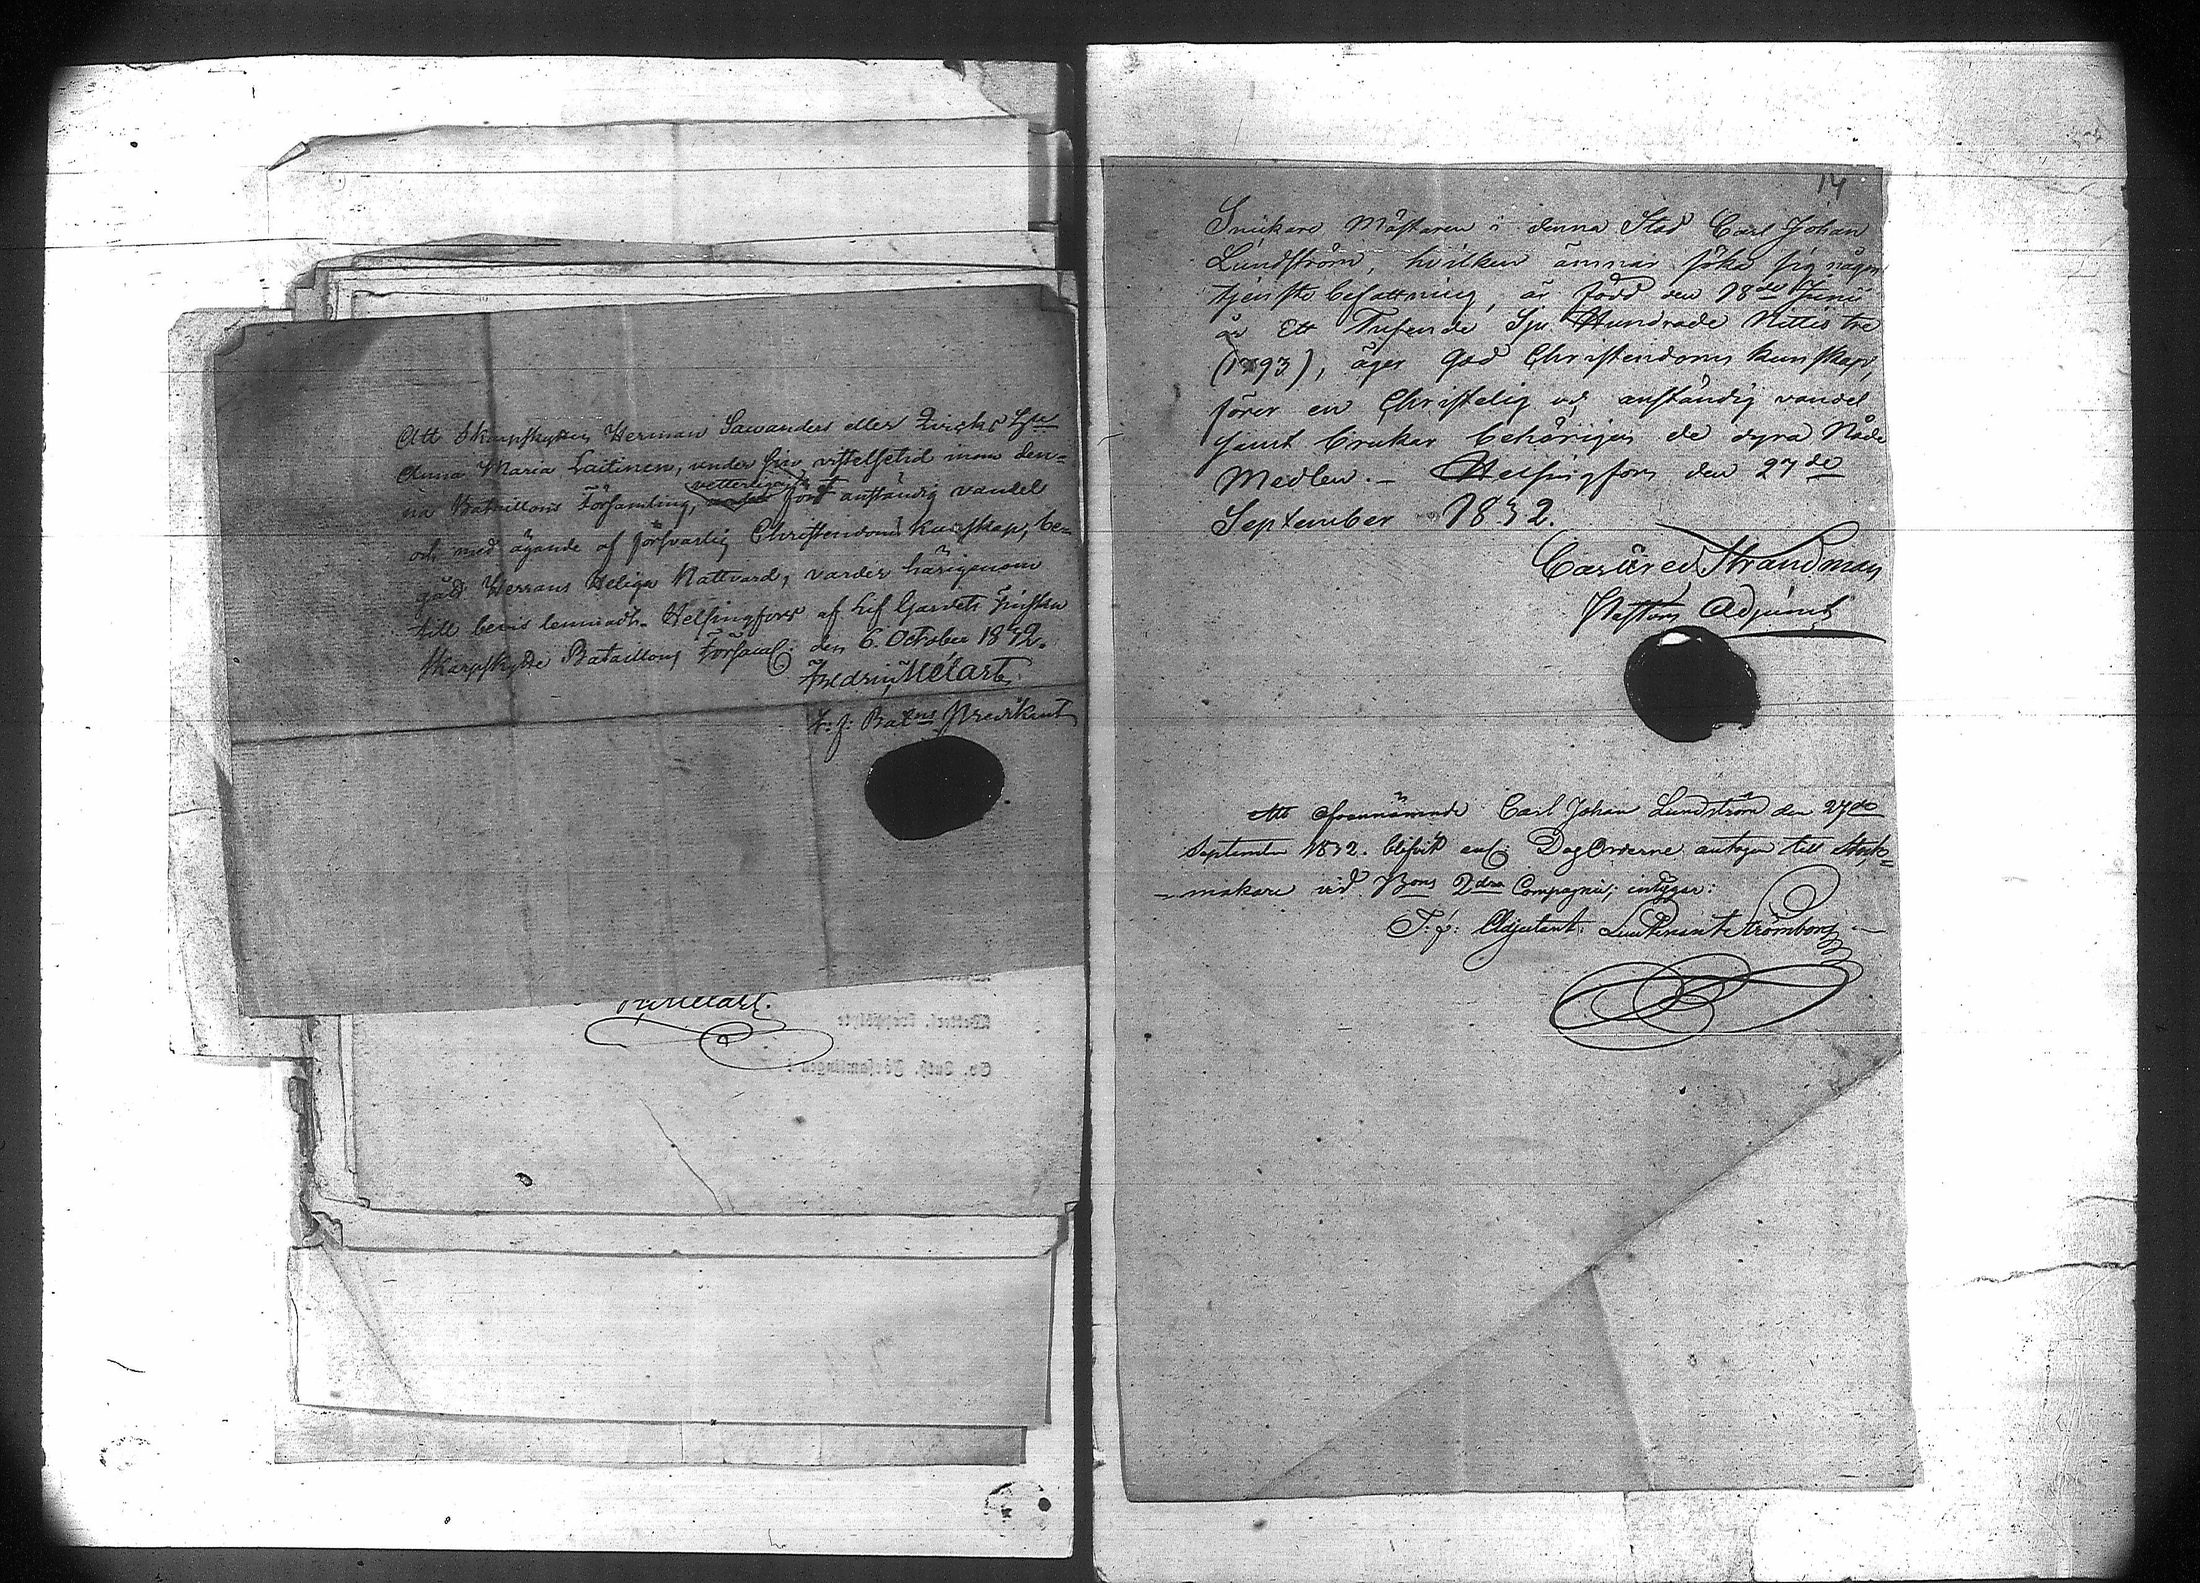 Att Skarpskytten Herman Sawanders eller Quicks Hu
Anna Maria Laitinen, under sin vistelsetid inom den-
na Bataillons Församling, vetterligen fört anständig vandel
och med ägande af försvarlig Christendoms kunskap, be-
gådt Herrans Heliga Nattvard, varder härigenom
till bevis lemnadt. Helsingfors af Lif Gardets Finska
Skarpskytte Bataillons Församl: den 6. October 1832.
Fredric Melart
t. f. Batns Predikant
Melart.
Ev. Luth. Församlingen
14
Snickare Mästaren i denna Stad Carl Johan
Lundström, hvilken ämnar söka sig någon
tjenstebefattning, är född den 18de Junii
år Ett Tusende Sju Hundrade Nittio tre
(1793), äger god Christendoms kunskap,
förer en Christelig och anständig vandel
samt brukar behörigen de dyra Nåde
Medlen. - Helsingfors den 27de
September 1832.
Strandman
Pastors Adjunct
Att ofvannämnde Carl Johan Lundström den 27de
September 1832. blifvit enl: DagOrderne antagen till Stock-
-makare vid Bons 2dra Compagnie; intygar:
T. f. Adjutant. Lieutenant Strömborg.